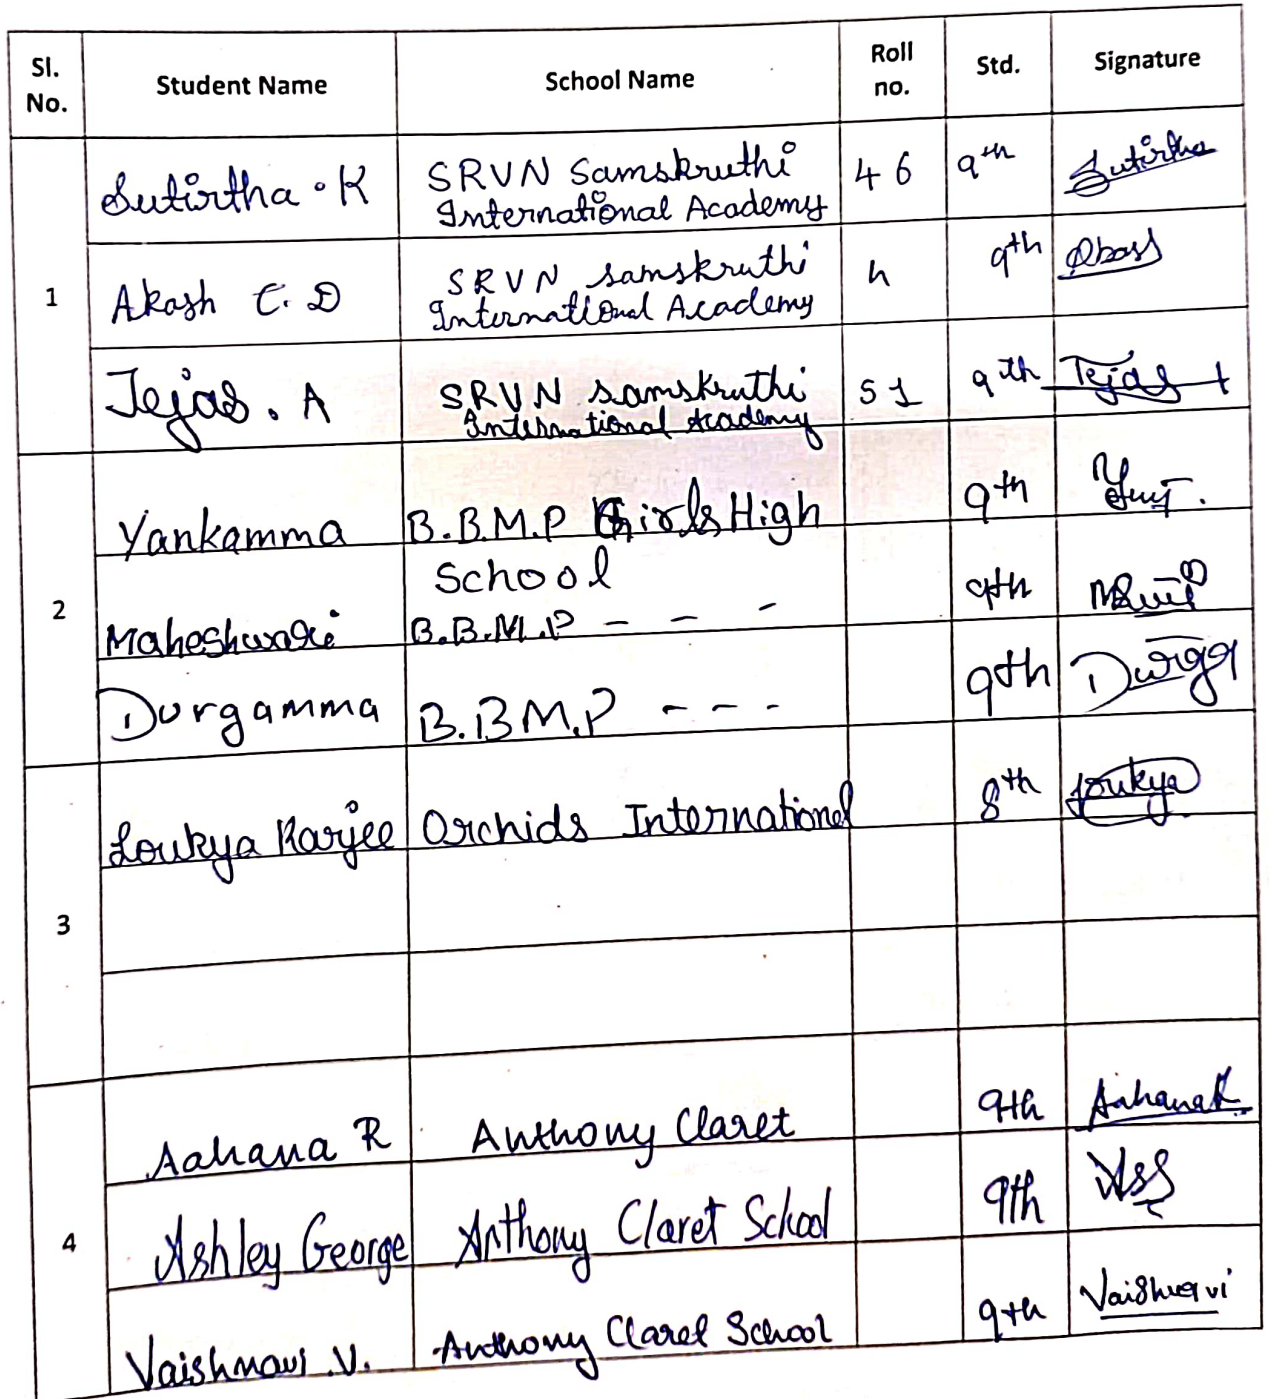 Sl. No. Student Name School Name Roll no. Std. Signature
1
Sutirtha . K SRVN Samskruthi International Academy 46 9th Sutirtha
Akash C. D SRVN samskruthi International Academy 9th
Tejas . A SRVN samskruthi International Academy 51 9th Tejas
2
Yankamma B.B.M.P Girls High School 9th
Maheshwari B.B.M.P - - - 9th
Durgamma B.B.M.P - - - 9th Durga
3
Loukya Karjee Orchids International 8th Loukya
4
Aahana R Anthony Claret 9th Aahana R
Ashley George Anthony Claret School 9th
Vaishnavi .V. Anthony Claret School 9th Vaishnavi